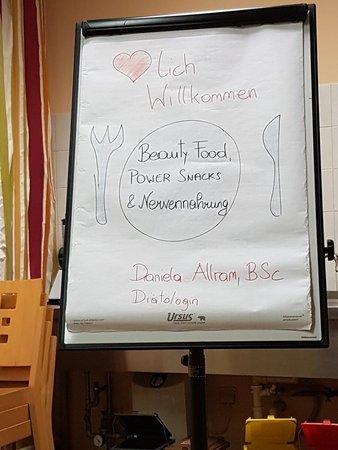 lich
Willkommen
Beauty Food,
POWER SNACKS
& Nervennahrung
Daniela Allram, BSc
Diätologin
URSUS